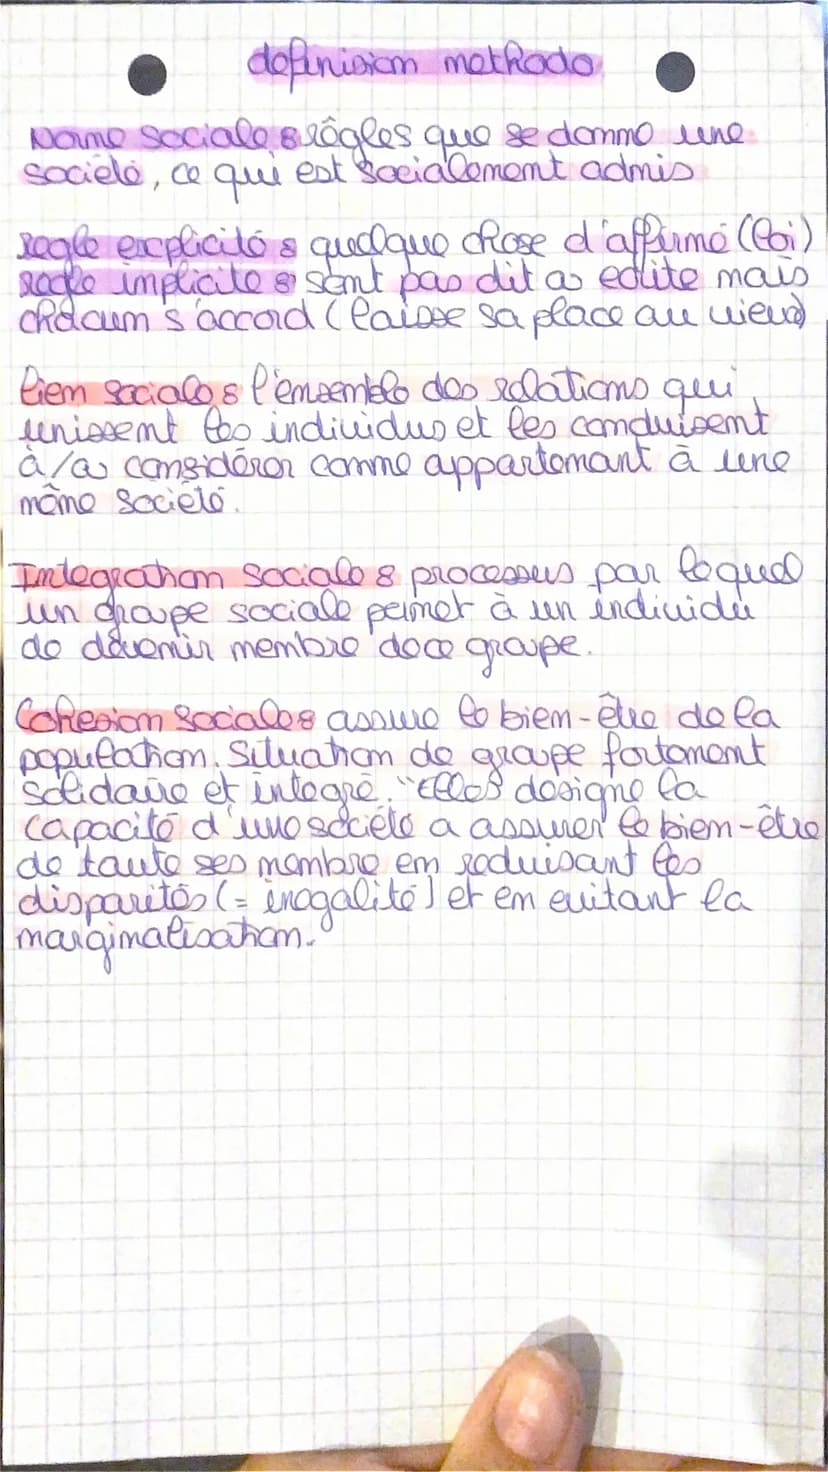 definision methodo
Norme sociale : règles que se donne une
société, ce qui est socialement admis
regle explicité : quelque chose d'affirmé (loi)
regle implicite : sont pas dit as edite mais
chacun s'accord (laisse sa place au vieux)
lien sociale : l'ensemble des relations qui
unissent les individus et les conduisent
à/as considérer comme appartenant à une
même société.
Integration sociale : processus par lequel
un groupe sociale permet à un individu
de devenir membre de ce groupe.
Cohesion sociale : assure le bien-être de la
population. Situation de groupe fortement
solidaire et integré. "Elles designe la
capacité d'une société a assurer le bien-être
de toute ses membre en reduisant les
disparités (= inegalité) et en evitant la
marginalisation."